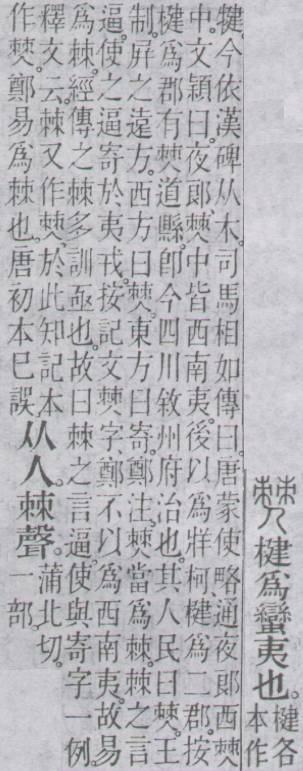 僰
楗爲蠻夷也。
楗各
本作
犍。今依漢碑从木。司馬相如傳曰。唐蒙使略通夜郎西僰
中。文穎曰。夜郎、僰中皆西南夷。後以爲牂柯楗爲二郡。按
楗爲郡有僰道縣。卽今四川敘州府治也。其人民曰僰。王
制。屏之遠方。西方曰僰。東方曰寄。鄭注。僰當爲棘。棘之言
逼。使之逼寄於夷戎。按記文僰字、鄭不以爲西南夷。故易
爲棘。經傳之棘多訓亟也。故曰棘之言逼。使與寄字一例。
釋文云。棘又作僰。於此知記本
作僰。鄭易爲棘也。唐初本已誤。
从人。棘聲。
蒲北切。
一部。